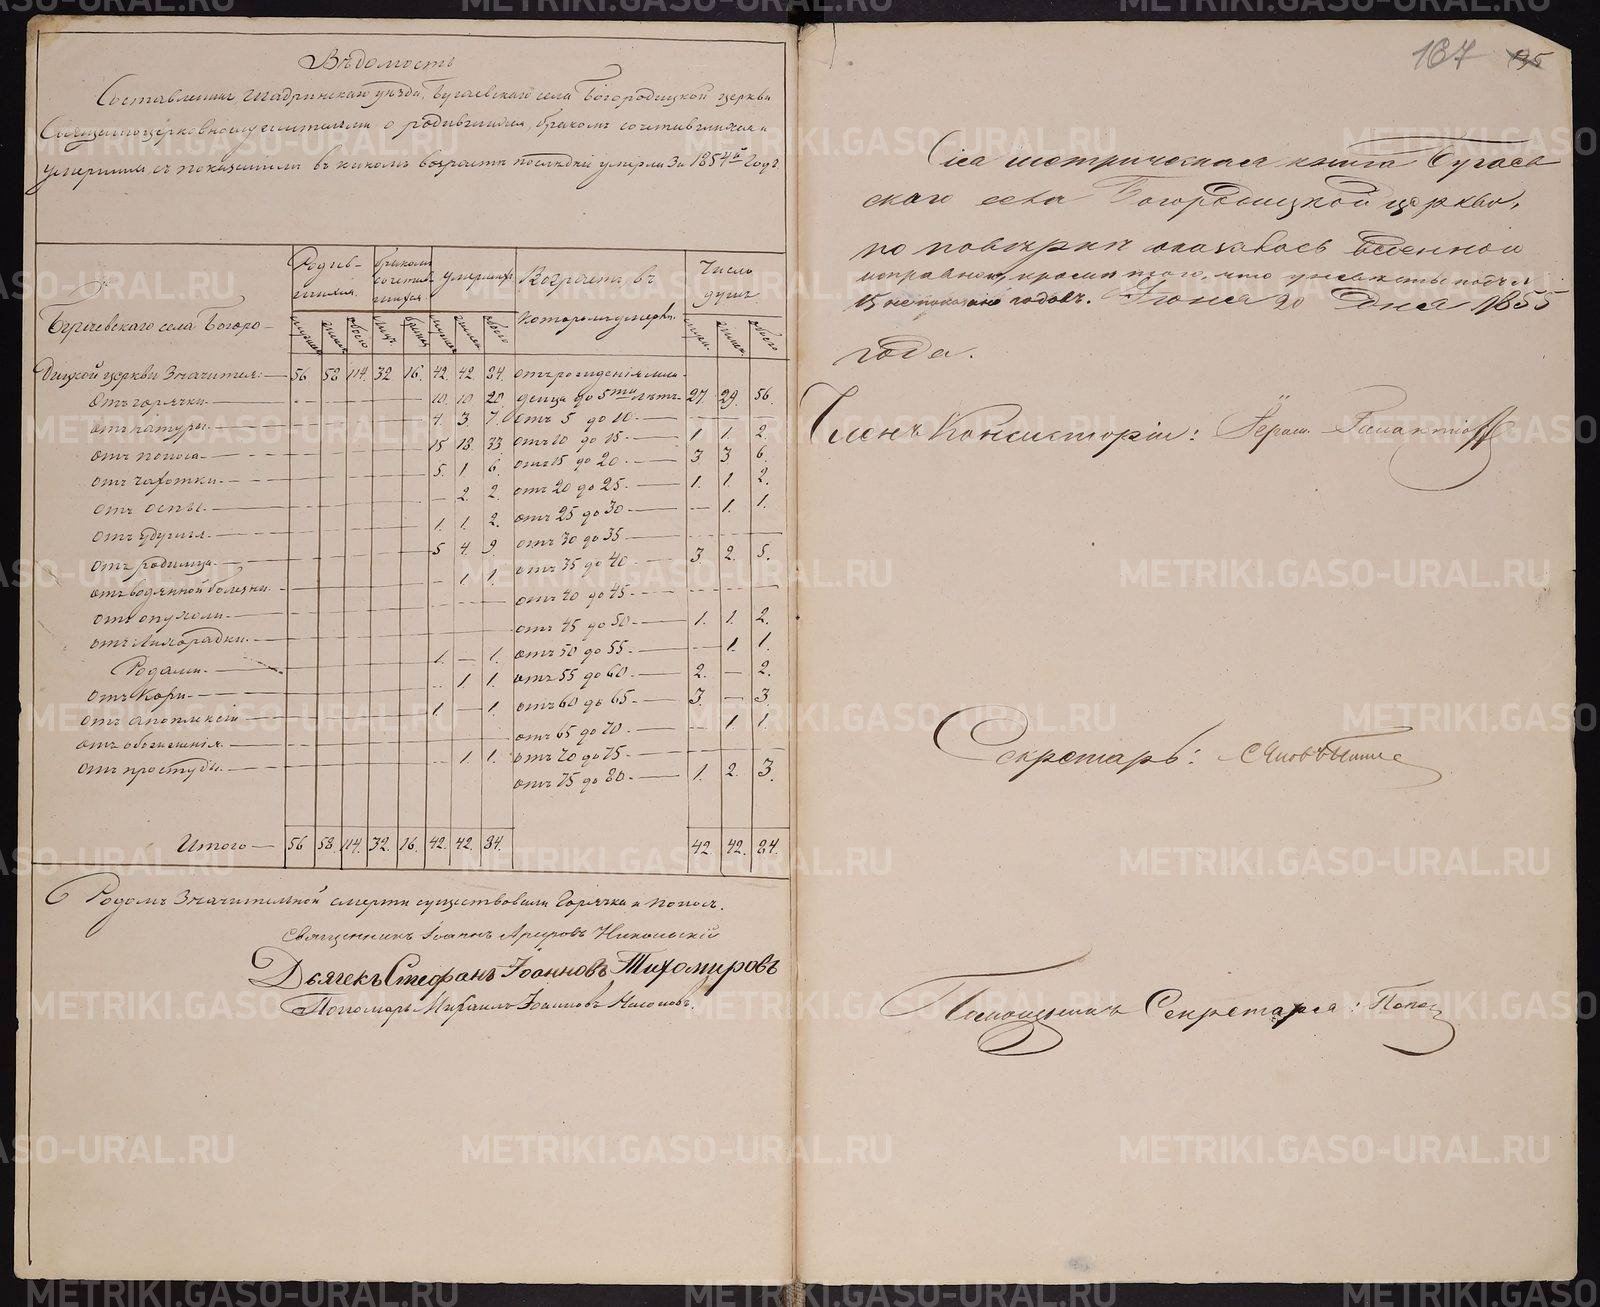 Вѣдомость
Составленная, Шадринскаго уѣзда, Бугаевскаго села Богородицкой церкви
Священноцерковнослужителями о родившихся, бракомъ сочетавшихся и
умершихъ, съ показаніемъ въ какомъ возрастѣ послѣдніе умерли За 1854й Годъ.
Родив-
шихся.
бракомъ
сочетав-
шихся
умершихъ
Возрастъ, въ
которомъ умерли.
Число
душъ
Бугаевскаго села Богоро-
мужеска женска обоего лицъ браковъ мужеска женска обоего муж. женск. обоего
дицкой церкви Значится: 56 58 114. 32 16. 42. 42. 84. отъ рожденія мла-
денца до 5ти лѣтъ 27. 29. 56.
отъ горячки. 10. 10 20 отъ 5 до 10
отъ натуры. 4. 3. 7. отъ 10 до 15 1. 1. 2.
отъ поноса. 15 18. 33. отъ 15 до 20 3 3 6.
отъ чахотки. 5. 1 6. отъ 20 до 25 1. 1. 2.
отъ оспы. 2. 2. отъ 25 до 30 1. 1.
отъ удушья. 1. 1. 2. отъ 30 до 35
отъ родимца. 5 4. 9. отъ 35 до 40 3. 2. 5.
отъ водяной болезни. 1. 1. отъ 40 до 45
отъ опухоли. отъ 45 до 50 1. 1. 2.
отъ Лихорадки. отъ 50 до 55 1. 1.
Родами. 1. 1. отъ 55 до 60 2. 2.
отъ Кори. 1. 1. отъ 60 до 65 3. 3.
отъ апоплексіи 1. 1. отъ 65 до 70 1. 1.
отъ обозженія. отъ 70 до 75
отъ простуды. 1. 1. отъ 75 до 80 1. 2. 3.
Итого 56 58. 114. 32. 16. 42. 42. 84. 42. 42. 84.
Родомъ Значительной смерти существовали Горячка и поносъ.
Священникъ Іоаннъ Никольскій
Дьячекъ Стефанъ Іоанновъ Тихомировъ
Пономарь Михаилъ Іоанновъ
167
Сія метрическая книга Бугаев
скаго села Богородицкой церкви,
по повѣркѣ оказалась веденною
исправною, кромѣ того, что
15 не показано годовъ. Іюня 20 дня 1855
года.
Членъ Консисторіи:
Секретарь:
Помощникъ Секретаря: Попов
METRIKI.GASO-URAL.RU